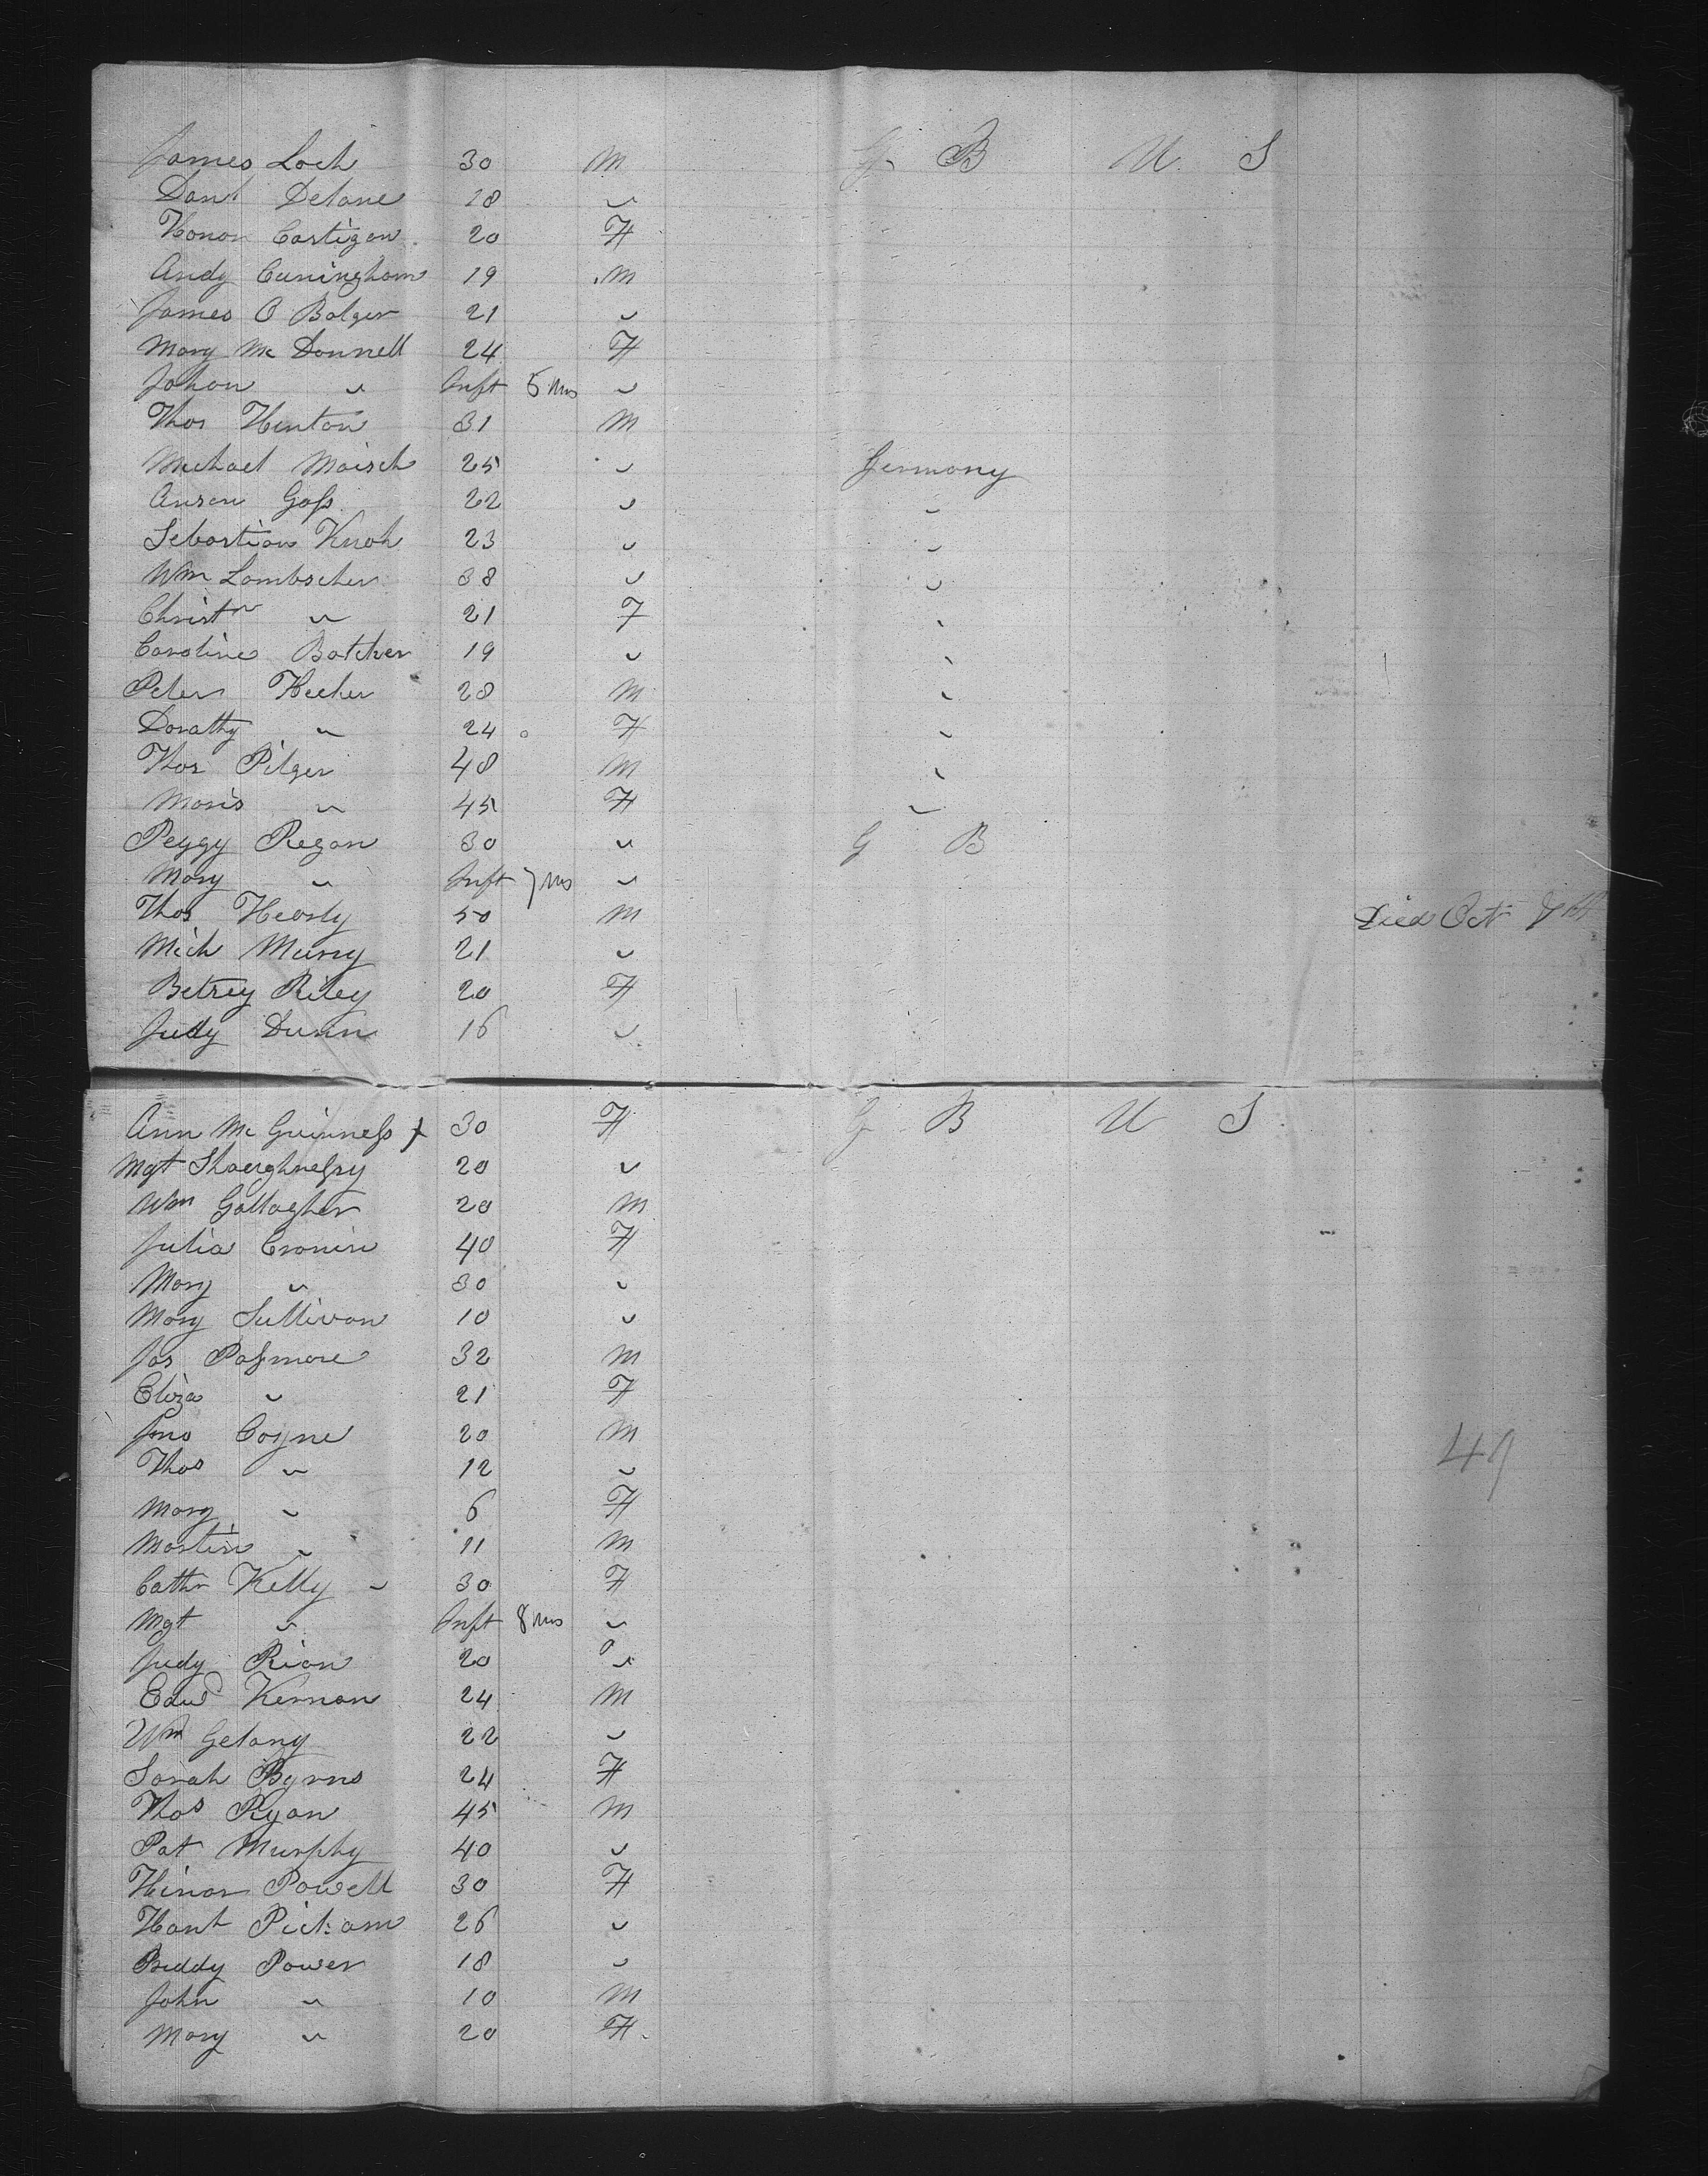 James Loch 30 M G B U S
Danl Delane 18 "
Honor Costigan 20 F
Andy Cuningham 19 M
James O Bolger 21 "
Mary Mc Donnell 24 F
Johan " Inft 6 ms "
Thos Hinton 31 M
Michael Maisch 25 " Germany
Anson Goss 22 " "
Sebastian Knoh 23 " "
Wm Lambscher 38 " "
Christn " 21 F "
Caroline Botcher 19 " "
Peter Hecker 28 M "
Dorathy " 24 F "
Thos Pilger 48 M "
Maris " 45 F "
Peggy Regan 30 " G B
Mary " Inft 7 ms "
Thos Hearly 50 M Died Oct 7th
Mich Murry 21 "
Betsey Riley 20 F
Judy Dunn 16 "
Ann Mc Guinness 30 F G B U S
Mgt Shaughnessy 20 "
Wm Gallagher 20 M
Julia Cronin 40 F
Mary " 30 "
Mary Sullivan 10 "
Jas Passmore 32 M
Eliza " 21 F
Jno Coyne 20 M
Thos " 12 "
Mary " 6 F
Martin " 11 M
Cathn Kelly " 30 F
Mgt " Inft 8 ms "
Judy Rian 20 "
Edwd Kernan 24 M
Wm Gelany 22 "
Sarah Byrns 24 F
Thos Ryan 45 M
Pat Murphy 40 "
Hinor Powell 30 F
Hant 26 "
Biddy Power 18 "
John " 10 M
Mary " 20 F
49